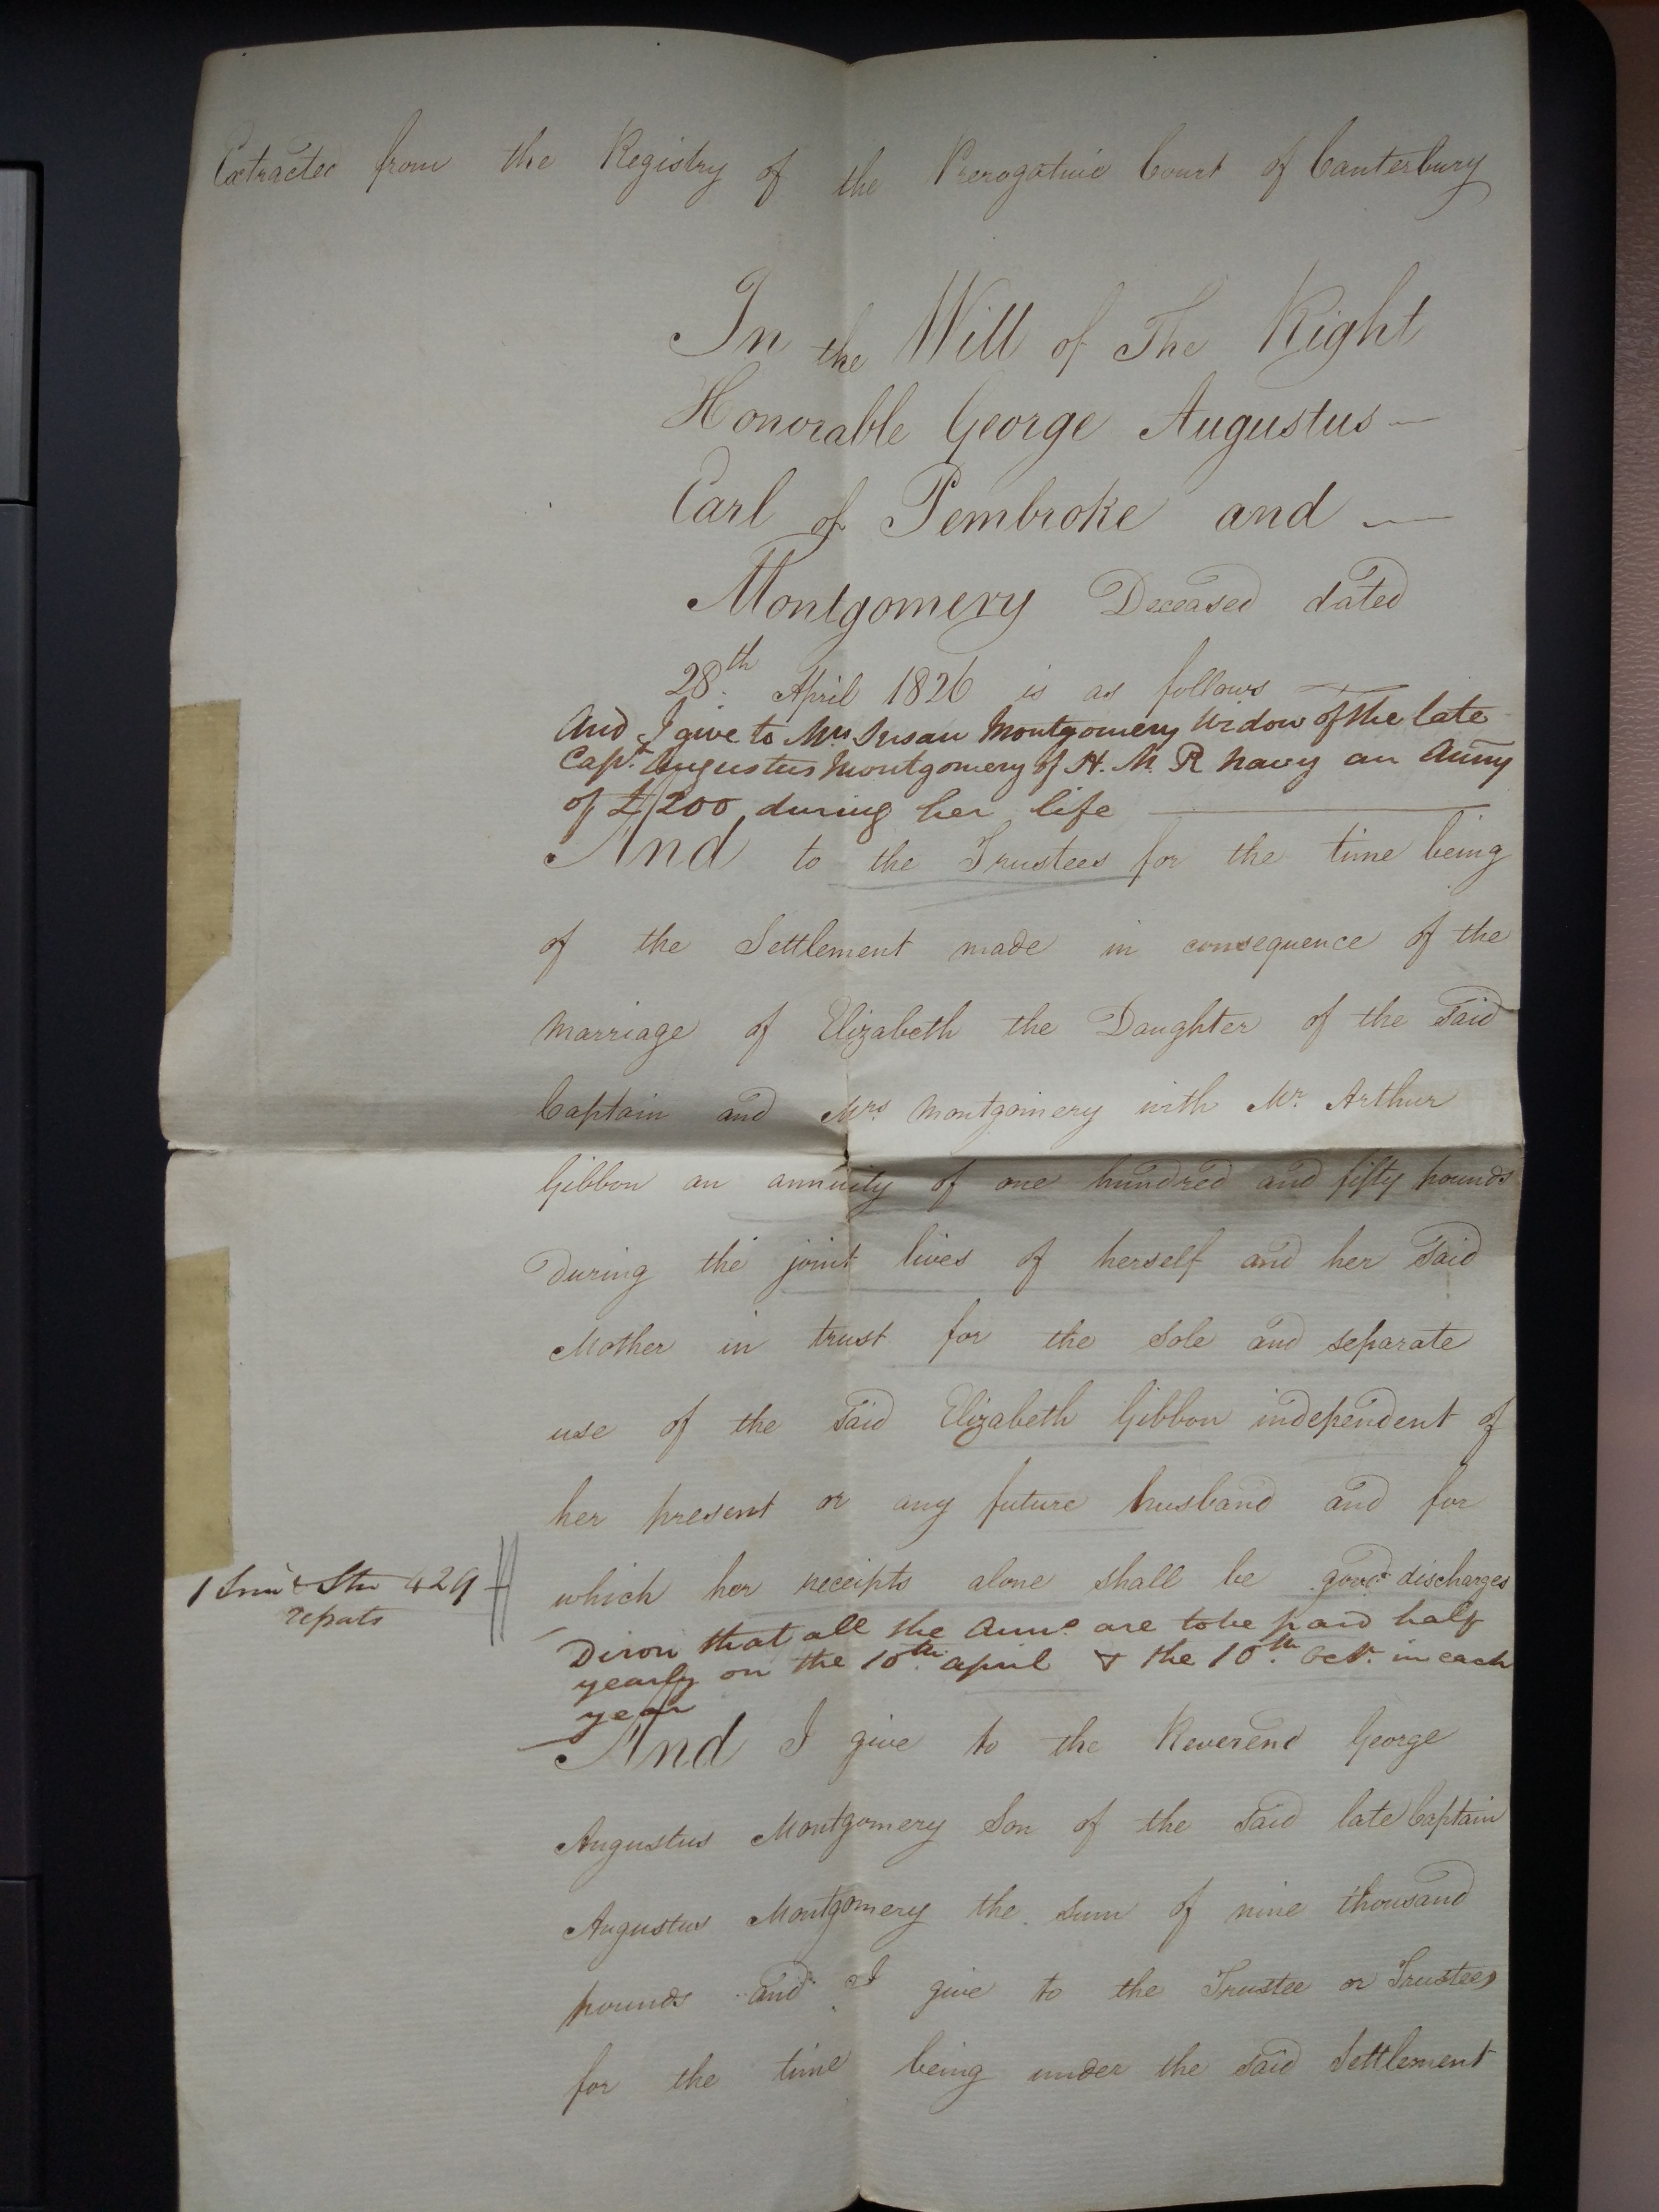 Extracted from the Registry of the Prerogative Court of Canterbury
In the Will of The Right
Honorable George Augustus —
Earl of Pembroke and —
Montgomery Deceased dated
28th. April 1826 is as follows —
And I give to Mrs Susan Montgomery Widow of the late
Capt. Augustus Montgomery of H. M. R Navy an Anny
of £200 during her life —
And to the Trustees for the time being
of the Settlement made in consequence of the
marriage of Elizabeth the Daughter of the said
Captain and Mrs. Montgomery with Mr. Arthur
Gibbon an annuity of one hundred and fifty pounds
during the joint lives of herself and her said
Mother in trust for the sole and separate
use of the said Elizabeth Gibbon independent of
her present or any future husband and for
which her receipts alone shall be good discharges
1 Sim & Stu 429
reports
Diron that all the Anns. are to be paid half
yearly on the 10th. April & the 10th. Octr. in each
year
And I give to the Reverend George
Augustus Montgomery Son of the said late Captain
Augustus Montgomery the sum of nine thousand
pounds and I give to the Trustee or Trustees
for the time being under the said Settlement